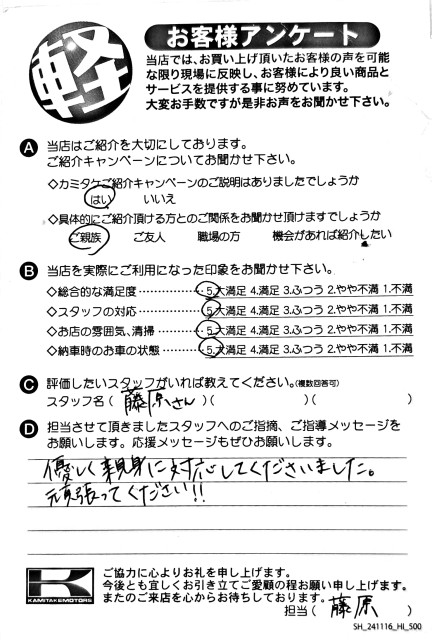 軽
お客様アンケート
当店では、お買い上げ頂いたお客様の声を可能
な限り現場に反映し、お客様により良い商品と
サービスを提供する事に努めています。
大変お手数ですが是非お声をお聞かせ下さい。
A 当店はご紹介を大切にしております。
ご紹介キャンペーンについてお聞かせ下さい。
◇カミタケご紹介キャンペーンのご説明はありましたでしょうか
はい いいえ
◇具体的にご紹介頂ける方とのご関係をお聞かせ頂けますでしょうか
ご親族 ご友人 職場の方 機会があれば紹介したい
B 当店を実際にご利用になった印象をお聞かせ下さい。
◇総合的な満足度……………5.大満足 4.満足 3.ふつう 2.やや不満 1.不満
◇スタッフの対応……………5.大満足 4.満足 3.ふつう 2.やや不満 1.不満
◇お店の雰囲気、清掃………5.大満足 4.満足 3.ふつう 2.やや不満 1.不満
◇納車時のお車の状態………5.大満足 4.満足 3.ふつう 2.やや不満 1.不満
C 評価したいスタッフがいれば教えてください。(複数回答可)
スタッフ名( 藤原さん )( )( )
D 担当させて頂きましたスタッフへのご指摘、ご指導メッセージを
お願いします。応援メッセージもぜひお願いします。
優しく親身に対応してくださいました。
頑張ってください!!
K
KAMITAKEMOTORS
ご協力に心よりお礼を申し上げます。
今後とも宜しくお引き立てご愛顧の程お願い申し上げます。
またのご来店を心からお待ちしております。
担当( 藤原 )
SH_241116_HI_500